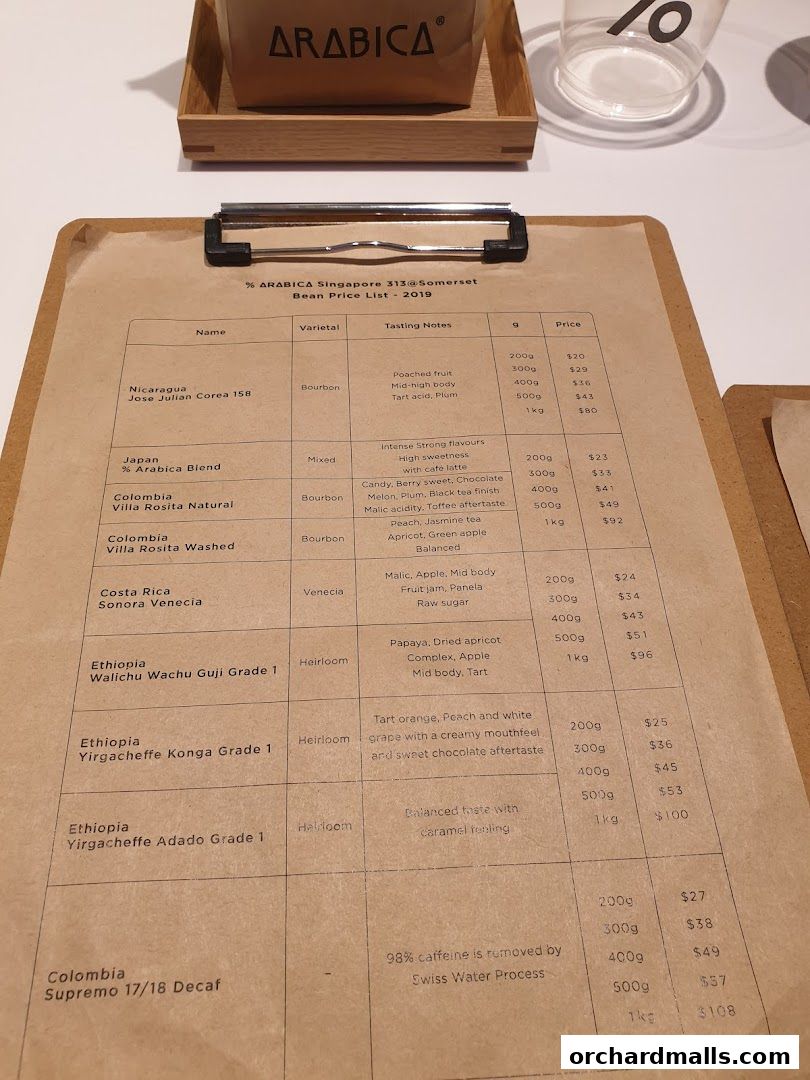 ARABICA®
%
% ARABICA Singapore 313@Somerset
Bean Price List - 2019
Name Varietal Tasting Notes g Price
Nicaragua
Jose Julian Corea 158
Bourbon
Poached fruit
Mid-high body
Tart acid, Plum
200g $20
300g $29
400g $36
500g $43
1kg $80
Japan
% Arabica Blend
Mixed
Intense Strong flavours
High sweetness
with café latte
Colombia
Villa Rosita Natural
Bourbon
Candy, Berry sweet, Chocolate
Melon, Plum, Black tea finish
Malic acidity, Toffee aftertaste
Colombia
Villa Rosita Washed
Bourbon
Peach, Jasmine tea
Apricot, Green apple
Balanced
200g $23
300g $33
400g $41
500g $49
1kg $92
Costa Rica
Sonora Venecia
Venecia
Malic, Apple, Mid body
Fruit jam, Panela
Raw sugar
Ethiopia
Walichu Wachu Guji Grade 1
Heirloom
Papaya, Dried apricot
Complex, Apple
Mid body, Tart
200g $24
300g $34
400g $43
500g $51
1kg $96
Ethiopia
Yirgacheffe Konga Grade 1
Heirloom
Tart orange, Peach and white
grape with a creamy mouthfeel
and sweet chocolate aftertaste
Ethiopia
Yirgacheffe Adado Grade 1
Heirloom
Balanced taste with
caramel feeling
200g $25
300g $36
400g $45
500g $53
1kg $100
Colombia
Supremo 17/18 Decaf
-
98% caffeine is removed by
Swiss Water Process
200g $27
300g $38
400g $49
500g $57
1kg $108
orchardmalls.com